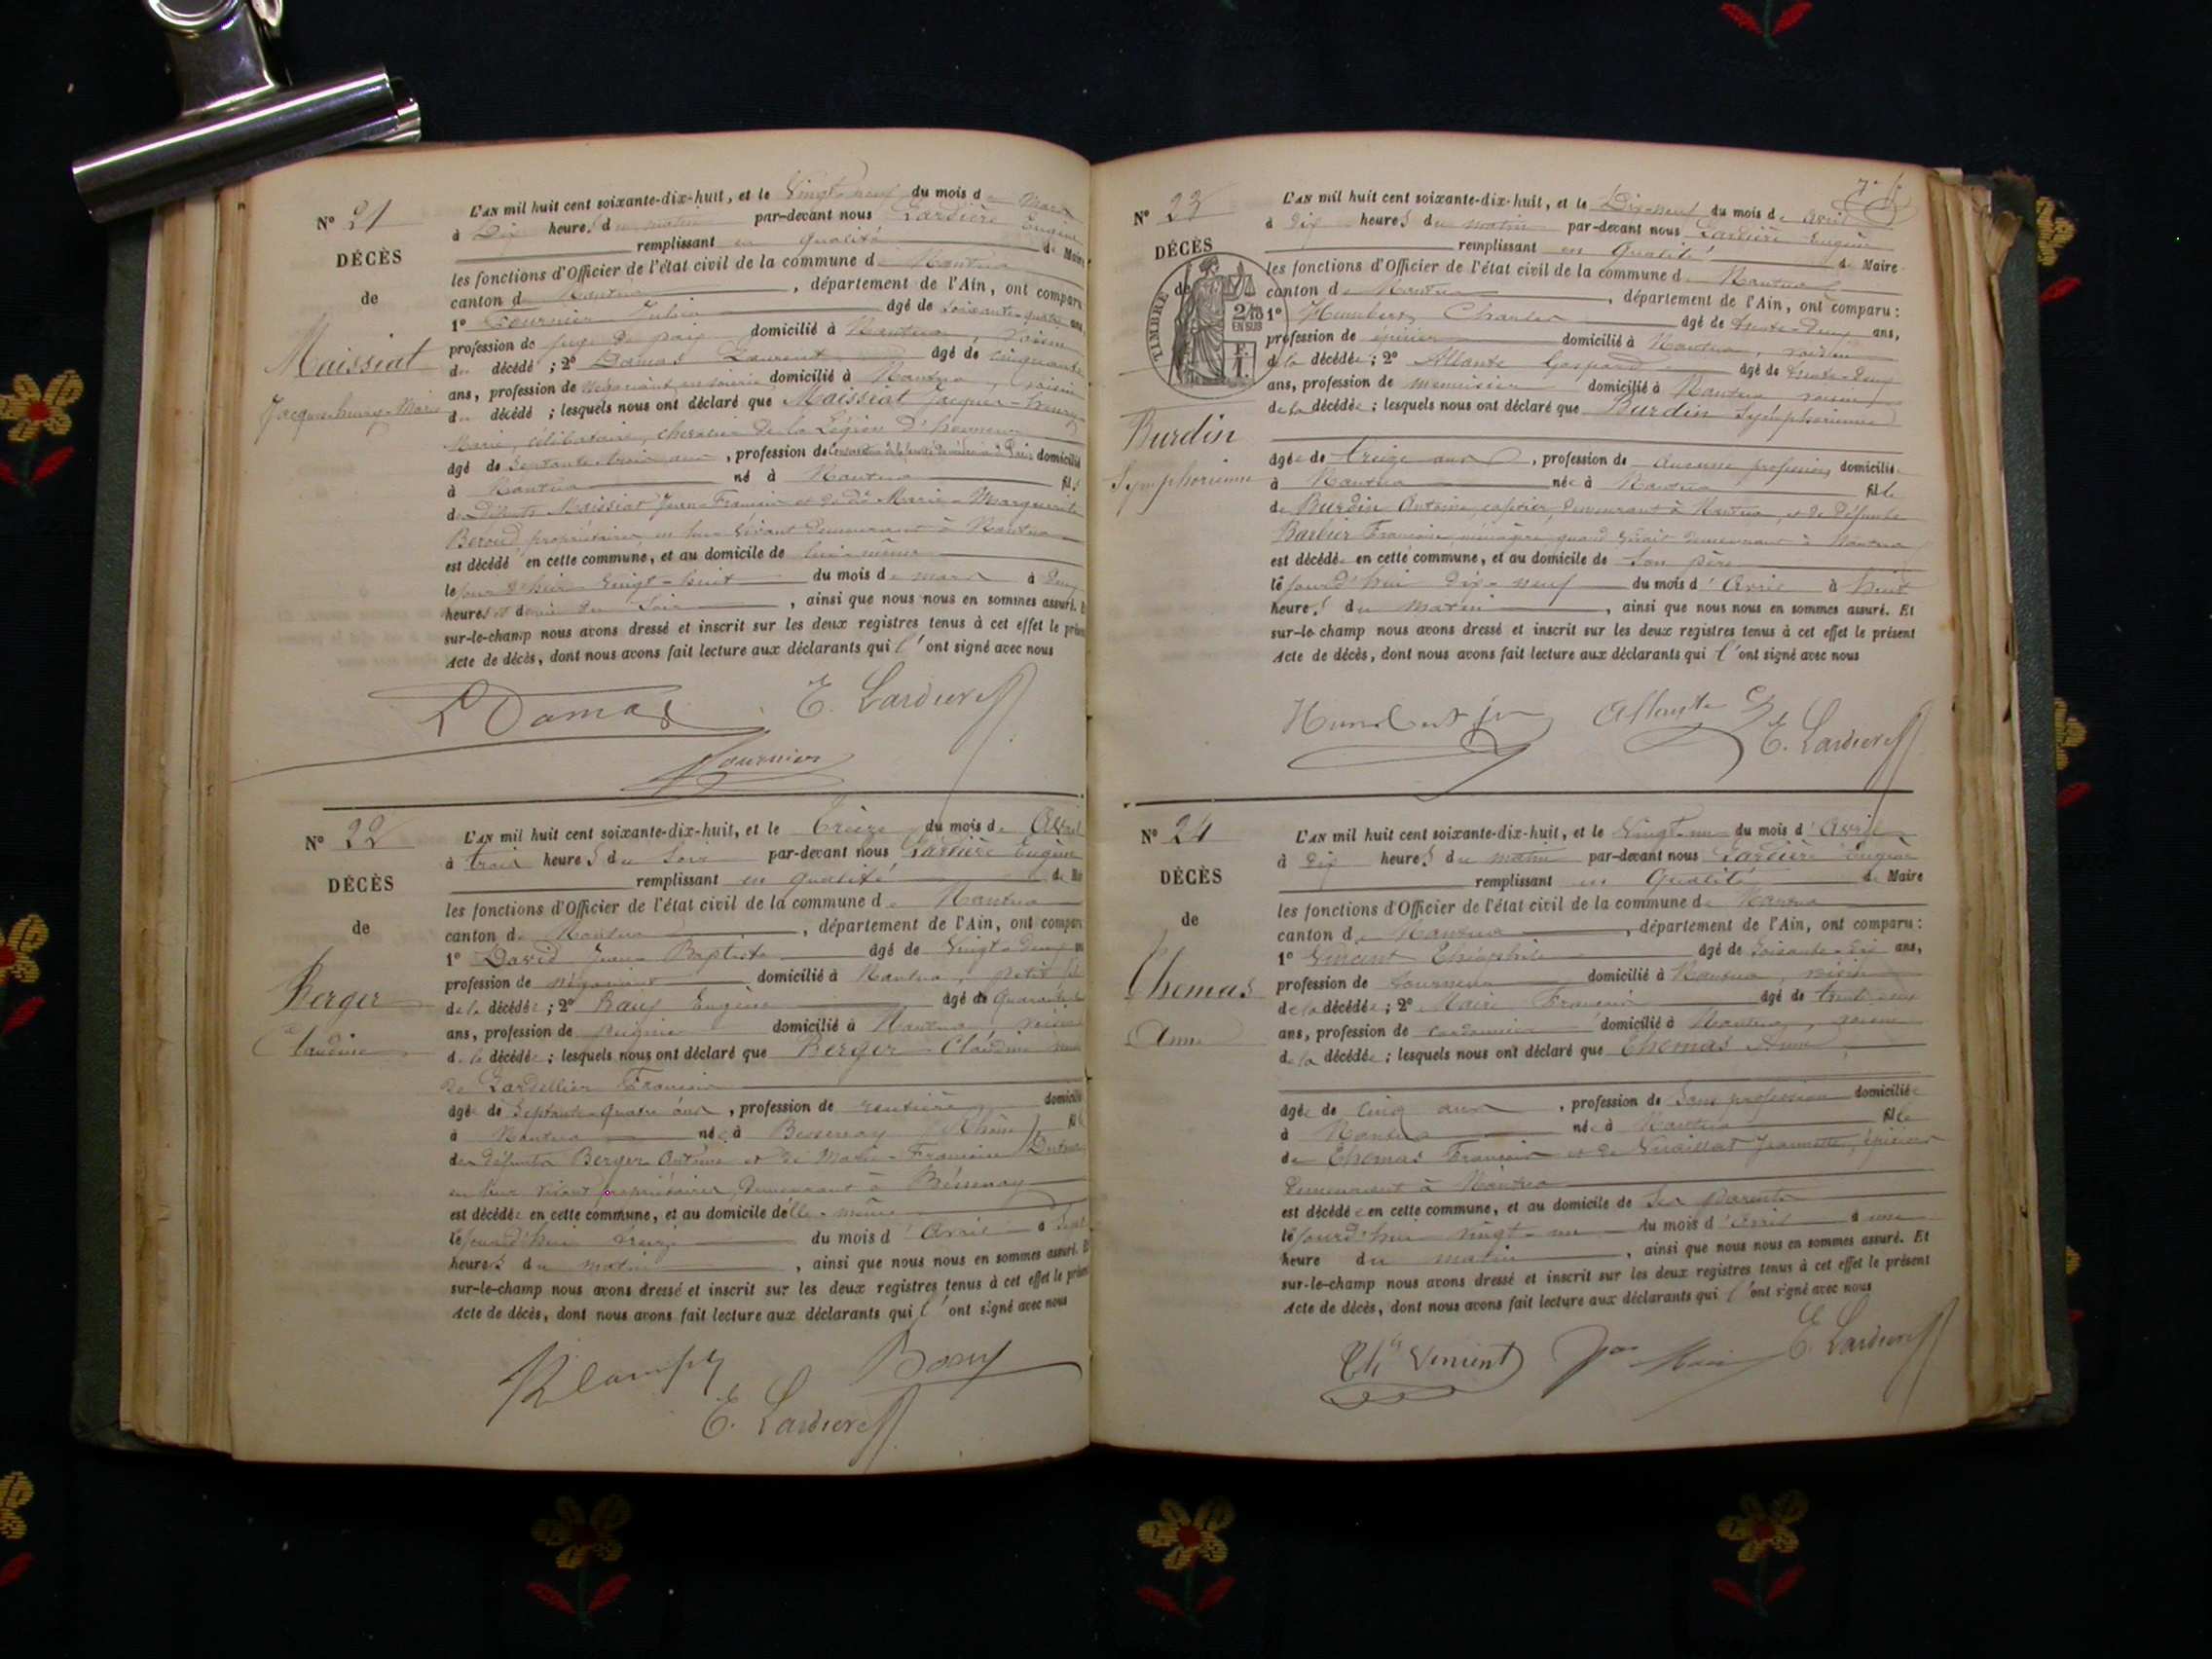 N° 21
DÉCÈS
de
Maissiat
Jacques henry Marie
L'AN mil huit cent soixante-dix-huit, et le Vingt-neuf du mois de Mars
à Dix heures du matin par-devant nous Lardière Eugène
remplissant en qualité de Maire
les fonctions d'Officier de l'état civil de la commune de Nantua
canton de Nantua, département de l'Ain, ont comparu
1° Fournier Julien âgé de soixante-quatre ans
profession de juge de paix domicilié à Nantua, voisin
du décédé ; 2° Damas Laurent âgé de cinquante
ans, profession de négociant en soierie domicilié à Nantua, voisin
du décédé ; lesquels nous ont déclaré que Maissiat Jacques-henry
Marie, célibataire, chevalier de la Légion d'honneur
âgé de Septante-trois ans, profession de domicilié
à Nantua né à Nantua fils
de Défunts Maissiat Jean-François et de Marie-Marguerite
Béroud propriétaires en leur vivant demeurant à Nantua
est décédé en cette commune, et au domicile de lui-même
le jour d'hier vingt-huit du mois de mars à
heures et demie du soir, ainsi que nous nous en sommes assuré. Et
sur-le-champ nous avons dressé et inscrit sur les deux registres tenus à cet effet le présent
Acte de décès, dont nous avons fait lecture aux déclarants qui l'ont signé avec nous
L Damas E. Lardiere
Fournier
N° 22
DÉCÈS
de
Berger
Claudine
L'AN mil huit cent soixante-dix-huit, et le Treize du mois de Avril
à trois heures du soir par-devant nous Lardière Eugène
remplissant en qualité de
les fonctions d'Officier de l'état civil de la commune de Nantua
canton de Nantua, département de l'Ain, ont comparu
1° David Jean Baptiste âgé de Vingt-deux
profession de négociant domicilié à Nantua, petit fils
de la décédée ; 2° Eugène âgé de Quarante
ans, profession de domicilié à Nantua, voisin
de la décédée ; lesquels nous ont déclaré que Berger Claudine
de Lardellier François
âgée de Septante-quatre ans, profession de rentière domiciliée
à Nantua née à Bessenay (Rhône) fille
des défunts Berger Antoine et de Marie-Françoise
en leur vivant propriétaires, demeurant à Bessenay
est décédée en cette commune, et au domicile d'elle-même
le jourd'hui treize du mois d'Avril à
heures du matin, ainsi que nous nous en sommes assuré. Et
sur-le-champ nous avons dressé et inscrit sur les deux registres tenus à cet effet le présent
Acte de décès, dont nous avons fait lecture aux déclarants qui l'ont signé avec nous
E. Lardiere
N° 23
DÉCÈS
de
TIMBRE
EN SUS
Burdin
Symphorienne
L'AN mil huit cent soixante-dix-huit, et le Dix-neuf du mois de avril
à dix heures du matin par-devant nous Lardière Eugène
remplissant en Qualité de Maire
les fonctions d'Officier de l'état civil de la commune de Nantua
canton de Nantua, département de l'Ain, ont comparu :
1° Humbert Charles âgé de trente-deux ans,
profession de épicier domicilié à Nantua, voisin
de la décédée ; 2° Allante Gaspard âgé de trente-deux
ans, profession de menuisier domicilié à Nantua voisin
de la décédée ; lesquels nous ont déclaré que Burdin Symphorienne
âgée de treize ans, profession de aucune profession domiciliée
à Nantua née à Nantua fille
de Burdin Antoine, cafetier, demeurant à Nantua, et de défunte
Barbier Françoise, ménagère quand vivait demeurant à Nantua
est décédée en cette commune, et au domicile de son père
le jourd'hui dix-neuf du mois d'Avril à huit
heures du matin, ainsi que nous nous en sommes assuré. Et
sur-le-champ nous avons dressé et inscrit sur les deux registres tenus à cet effet le présent
Acte de décès, dont nous avons fait lecture aux déclarants qui l'ont signé avec nous
Humbert jn Allante G E. Lardiere
N° 24
DÉCÈS
de
Thomas
Anne
L'AN mil huit cent soixante-dix-huit, et le Vingt-un du mois d'Avril
à dix heures du matin par-devant nous Lardière Eugène
remplissant en Qualité de Maire
les fonctions d'Officier de l'état civil de la commune de Nantua
canton de Nantua, département de l'Ain, ont comparu :
1° Vincent Théophile âgé de soixante-dix ans,
profession de tourneur domicilié à Nantua, voisin
de la décédée ; 2° Maire François âgé de
ans, profession de cordonnier domicilié à Nantua, voisin
de la décédée ; lesquels nous ont déclaré que Thomas Anne
âgée de cinq ans, profession de sans profession domiciliée
à Nantua née à Nantua fille
de Thomas François et de Vuaillat Jeannette, épiciers
demeurant à Nantua
est décédée en cette commune, et au domicile de ses parents
le jourd'hui vingt-un du mois d'Avril à une
heure du matin, ainsi que nous nous en sommes assuré. Et
sur-le-champ nous avons dressé et inscrit sur les deux registres tenus à cet effet le présent
Acte de décès, dont nous avons fait lecture aux déclarants qui l'ont signé avec nous
Vincent E. Lardiere